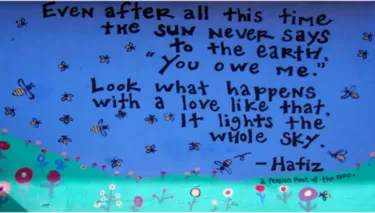 Even after all this time
the sun never says
to the earth,
"you owe me."
Look what happens
with a love like that,
It lights the
whole sky.
- Hafiz
a Persian Poet of the 1300s.